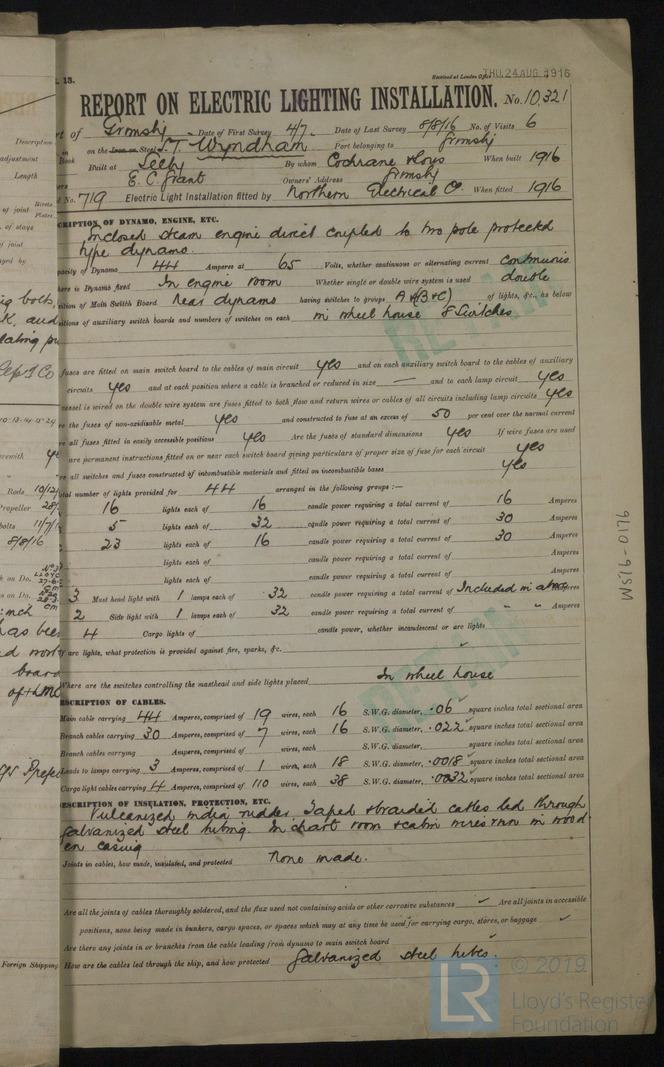 13.
Received at London Office THU. 24 AUG. 1916
REPORT ON ELECTRIC LIGHTING INSTALLATION. No. 10,321
rt of Grimsby Date of First Survey 4/7 Date of Last Survey 8/8/16 No. of Visits 6
on the Iron or Steel S.T. Wyndham Port belonging to Grimsby
Built at Selby By whom Cochrane & Sons When built 1916
E. C. Grant Owners' Address Grimsby
No. 719 Electric Light Installation fitted by Northern Electrical Co When fitted 1916
CRIPTION OF DYNAMO, ENGINE, ETC.
Inclosed steam engine direct coupled to two pole protected
type dynamo.
pacity of Dynamo 44 Amperes at 65 Volts, whether continuous or alternating current continuous
here is Dynamo fixed In engine room Whether single or double wire system is used double
sition of Main Switch Board Near dynamo having switches to groups A & (B+C) of lights, &c., as below
sitions of auxiliary switch boards and numbers of switches on each in wheel house 8 switches
fuses are fitted on main switch board to the cables of main circuit yes and on each auxiliary switch board to the cables of auxiliary
circuits yes and at each position where a cable is branched or reduced in size — and to each lamp circuit yes
vessel is wired on the double wire system are fuses fitted to both flow and return wires or cables of all circuits including lamp circuits yes
re the fuses of non-oxidisable metal yes and constructed to fuse at an excess of 50 per cent over the normal current
re all fuses fitted in easily accessible positions yes Are the fuses of standard dimensions yes If wire fuses are used
are permanent instructions fitted on or near each switch board giving particulars of proper size of fuse for each circuit yes
re all switches and fuses constructed of incombustible materials and fitted on incombustible bases yes
otal number of lights provided for 44 arranged in the following groups :—
16 lights each of 16 candle power requiring a total current of 16 Amperes
5 lights each of 32 candle power requiring a total current of 30 Amperes
23 lights each of 16 candle power requiring a total current of 30 Amperes
lights each of candle power requiring a total current of Amperes
lights each of candle power requiring a total current of Amperes
3 Mast head light with 1 lamps each of 32 candle power requiring a total current of Included in above Amperes
2 Side light with 1 lamps each of 32 candle power requiring a total current of " " Amperes
4 Cargo lights of candle power, whether incandescent or arc lights
If arc lights, what protection is provided against fire, sparks, &c.
Where are the switches controlling the masthead and side lights placed In wheel house
ESCRIPTION OF CABLES.
Main cable carrying 44 Amperes, comprised of 19 wires, each 16 S.W.G. diameter, .06 square inches total sectional area
Branch cables carrying 30 Amperes, comprised of 7 wires, each 16 S.W.G. diameter, .022 square inches total sectional area
Branch cables carrying Amperes, comprised of wires, each S.W.G. diameter, square inches total sectional area
Leads to lamps carrying 3 Amperes, comprised of 1 wires, each 18 S.W.G. diameter, .0018 square inches total sectional area
Cargo light cables carrying 4 Amperes, comprised of 110 wires, each 38 S.W.G. diameter, .0032 square inches total sectional area
ESCRIPTION OF INSULATION, PROTECTION, ETC.
Vulcanized india rubber. Taped & braided cables led through
galvanized steel tubing. In chart room & cabin wires run in wood
en casing
Joints in cables, how made, insulated, and protected None made.
Are all the joints of cables thoroughly soldered, and the flux used not containing acids or other corrosive substances ✓ Are all joints in accessible
positions, none being made in bunkers, cargo spaces, or spaces which may at any time be used for carrying cargo, stores, or baggage ✓
Are there any joints in or branches from the cable leading from dynamo to main switch board
How are the cables led through the ship, and how protected Galvanized steel tubes.
WS16-0176
Foreign Shipping
LR © 2019
Lloyd's Register
Foundation